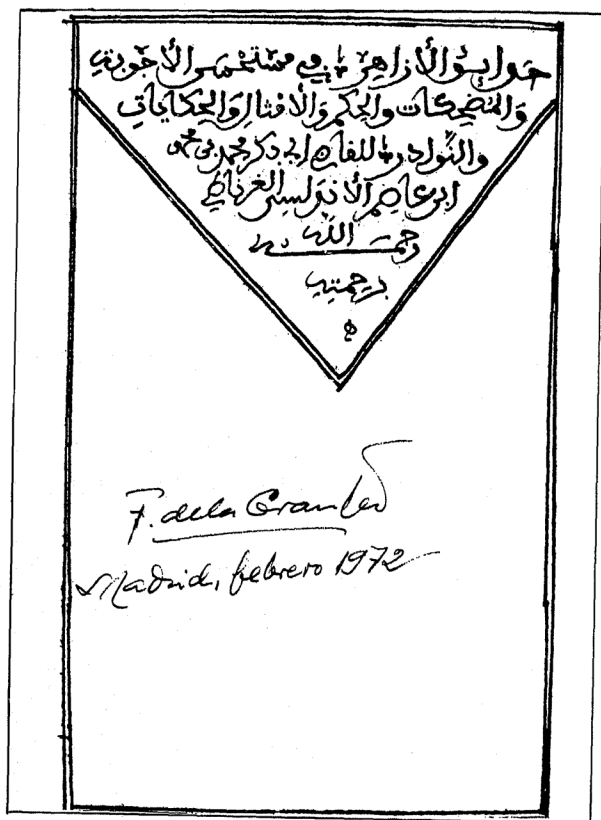 حدايق الأزاهر في مستحسن الأجوبة
والمضحكات والحكم والأمثال والحكايات
والنوادر للقاضي ابي بكر محمد بن محمد
ابن عاصم الأندلسي الغرناطي
رحمه الله
برحمته
F. de la Granja
Madrid, febrero 1972